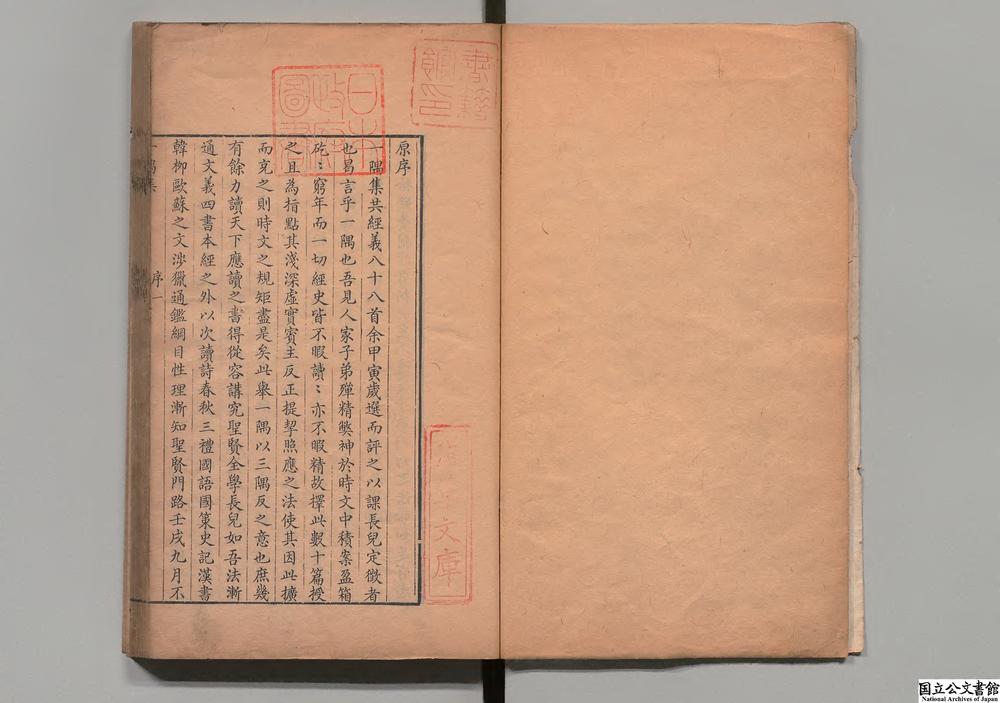 原序
一隅集共經義八十八首余甲寅歲選而評之以課長兒定徵者
也曷言乎一隅也吾見人家子弟殫精獘神於時文中積案盈箱
矻〻窮年而一切經史皆不暇讀〻亦不暇精故擇此數十篇授
之且為指點其淺深虛實賓主反正提挈照應之法使其因此擴
而充之則時文之規矩盡是矣此舉一隅以三隅反之意也庶幾
有餘力讀天下應讀之書得從容講究聖賢全學長兒如吾法漸
通文義四書本經之外以次讀詩春秋三禮國語國策史記漢書
韓柳歐蘇之文涉獵通鑑綱目性理漸知聖賢門路壬戌九月不
一隅集
序一
日本
政府
圖書
書籍
館印
文庫
国立公文書館
National Archives of Japan